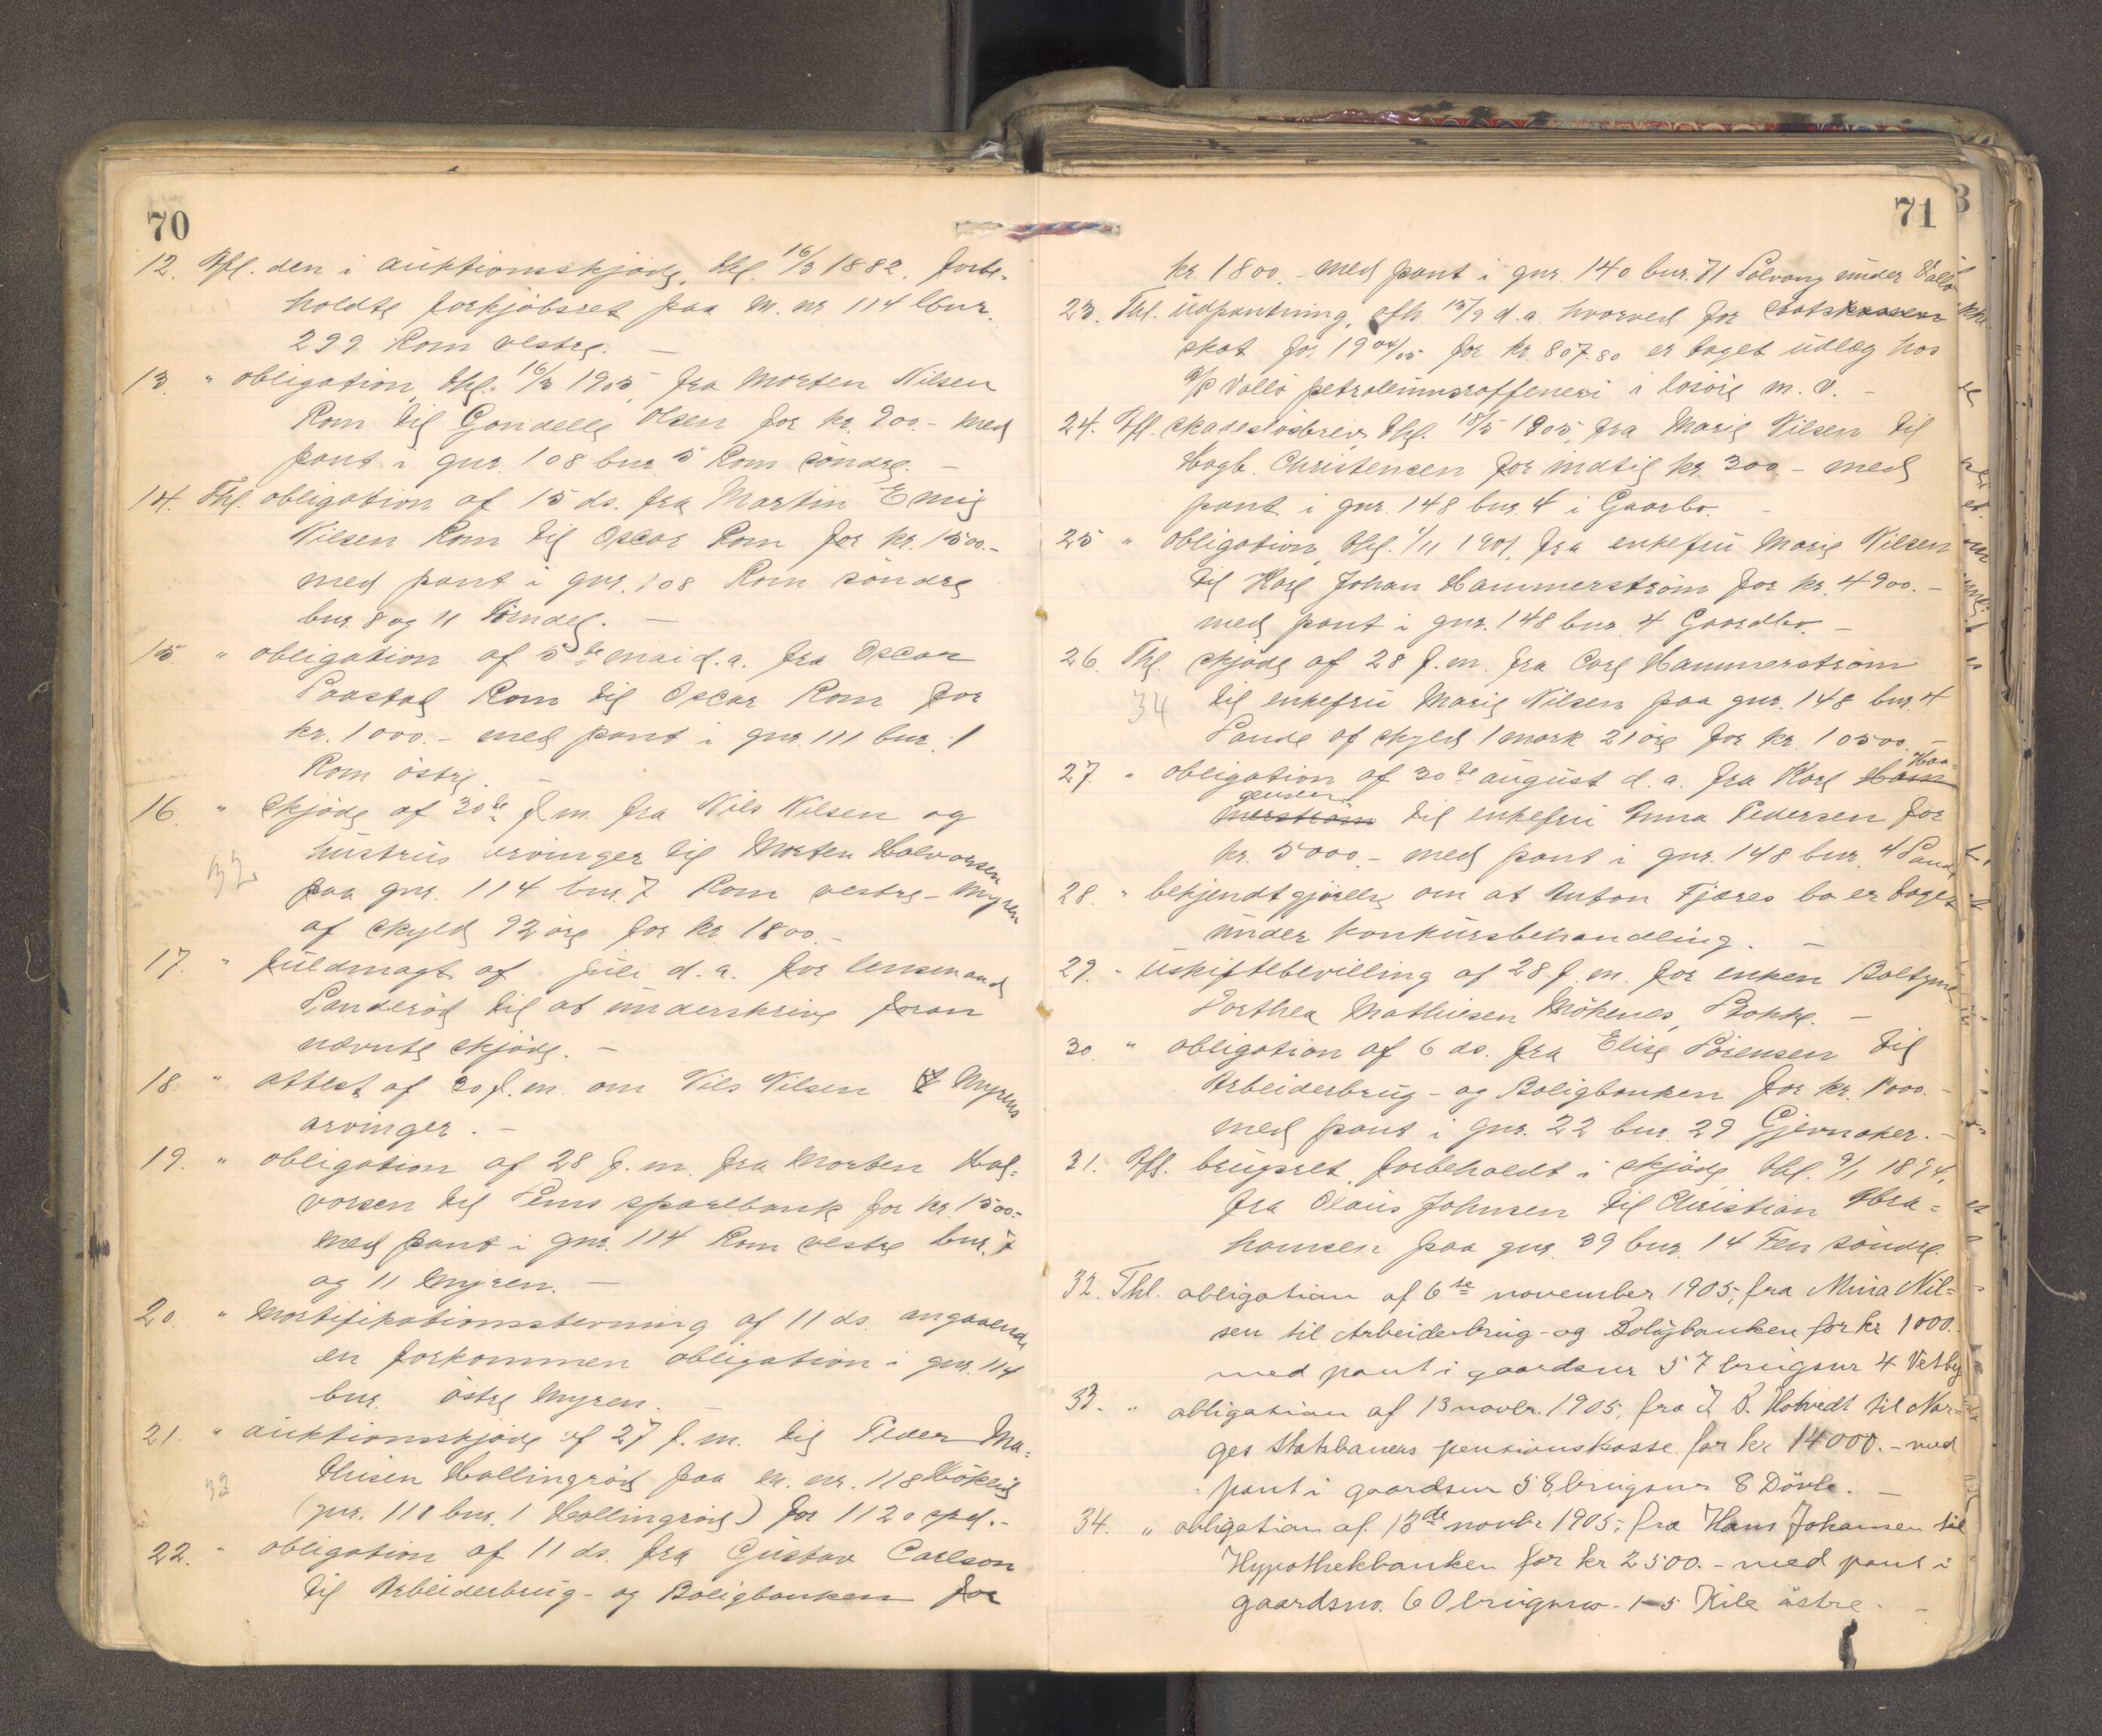 70
12. Afl. den i auktionsskjøde, thl. 16/3 1882, forbe-
holdte forkjøbsret paa m. nr 114 lbnr.
299 Rom vestre. —
13 " obligation, thl. 16/3 1905, fra Morten Nilsen
Rom til Gondelle Olsen for kr. 900.- med
pant i gnr. 108 bnr 5 Rom søndre. —
14. Thl. obligation af 15 ds. fra Martin Emil
Nilsen Rom til Oscar Rom for kr. 1500.-
med pant i gnr. 108 Rom söndre
bnr. 8 og 11
15 " obligation af 5te mai d.a. fra Oscar
Paastad Rom til Oscar Rom for
kr. 1000.- med pant i gnr. 111 bnr. 1
Rom östre. —
16. " skjöde af 30te f.m. fra Nils Nilsen og
hustrus arvinger til Morten Halvorsen
32
paa gnr. 114 bnr. 7 Rom vestre - Myren
af skyld 92 öre for kr 1800.-
17. " fuldmagt af juli d.a. for lensmand
Sanderöd til at underskrive foran
nævnte skjöde. —
18. " attest af 30 f.m. om Nils Nilsen Myrens
arvinger. —
19. " obligation af 28 f.m. fra Morten Hal-
vorsen til Sems sparebank for kr. 1500.-
med pant i gnr. 114 Rom vestre bnr. 7
og 11 Myren. —
20. " Mortifikationsstevning af 11 ds. angaaende
en forkommen obligation i gnr. 114
bnr. östre Myren. —
21. " auktionsskjöde af 27 f.m. til Peder Ma-
thisen Hollingröd paa m. nr. 118 Hökeli
33
(gnr. 118 bnr. 1 Hollingröd) for 1120 spd.-
22. " obligation af 11 ds. fra Gustav Carlson
til Arbeiderbrug- og Boligbanken for
71
kr. 1800.- med pant i gnr. 140 bnr. 71 Solvang under Vallö
23. Thl. udpantning, afh. 15/9 d.a. hvorved for statskassen
skat for 1904/05 for kr. 807.80 er taget udlæg hos
A/S Vallö petroleumsraffeneri i lösöre m. v. —
24. Afl. skadeslösbrev, thl. 15/5 1905, fra Marie Nilsen til
Hagb. Christensen for indtil kr. 300.- med
pant i gnr. 148 bnr. 4 i Gaarbo. —
25 " obligation, thl. 1/11 1901, fra enkefru Marie Nilsen
til Karl Johan Hammerström for kr. 4900.-
med pant i gnr. 148 bnr. 4 Gaardbo. —
26. Thl. skjöde af 28 f.m. fra Carl Hammerström
34
til enkefru Marie Nilsen paa gnr. 148 bnr. 4
Sande af skyld 1 mark 21 öre for kr. 10500.-
27. " obligation af 30te august d.a. fra Karl Ham Haa-
merström gensen til enkefru Anna Pedersen for
kr. 5000.- med pant i gnr. 148 bnr. 4 Sande
28. " bekjendtgjörelse om at Anton Fjæres bo er taget
under konkursbehandling. —
29. " uskiftebevilling af 28 f.m. for enken
Dorthea Mathiesen Mökenes, Stokke. —
30. " obligation af 6 ds. fra Elise Sörensen til
Arbeiderbrug- og Boligbanken for kr. 1000.-
med pant i gnr. 22 bnr. 29 Gjevnaker. —
31. Afl. brugsret, forbeholdt i skjöde, thl. 9/1 1894,
fra Olaus Johnsen til Christian Abra-
hamsen paa gnr. 39 bnr. 14 Fen söndre.
32. Thl. obligation af 6te november 1905, fra Mina Nil-
sen til Arbeiderbrug- og Boligbanken for kr 1000.-
med pant i gaardsnr 57 brugsnr 4 Vestby
33. " obligation af 13 novbr. 1905, fra J. P. Holtvedt til Nor-
ges Statsbaners pensionskasse for kr 14000.- med
pant i gaardsnr 58, brugsnr 8 Dövle. —
34. " obligation af 13de novbr 1905, fra Hans Johansen til
Hypothekbanken for kr 2500.- med pant i
gaardsnr. 60 brugsnr 1-5 Kile östre. —